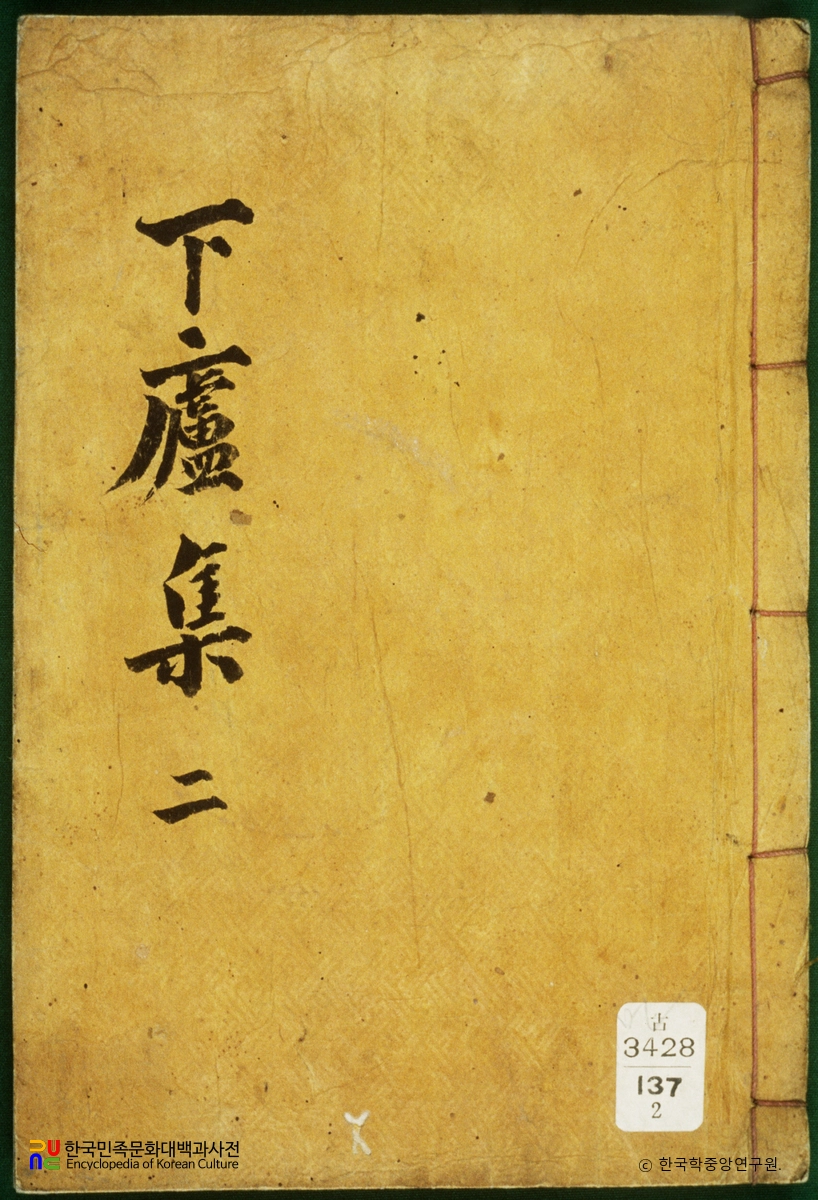 下廬集 二
古
3428
137
2
한국민족문화대백과사전
Encyclopedia of Korean Culture
© 한국학중앙연구원.